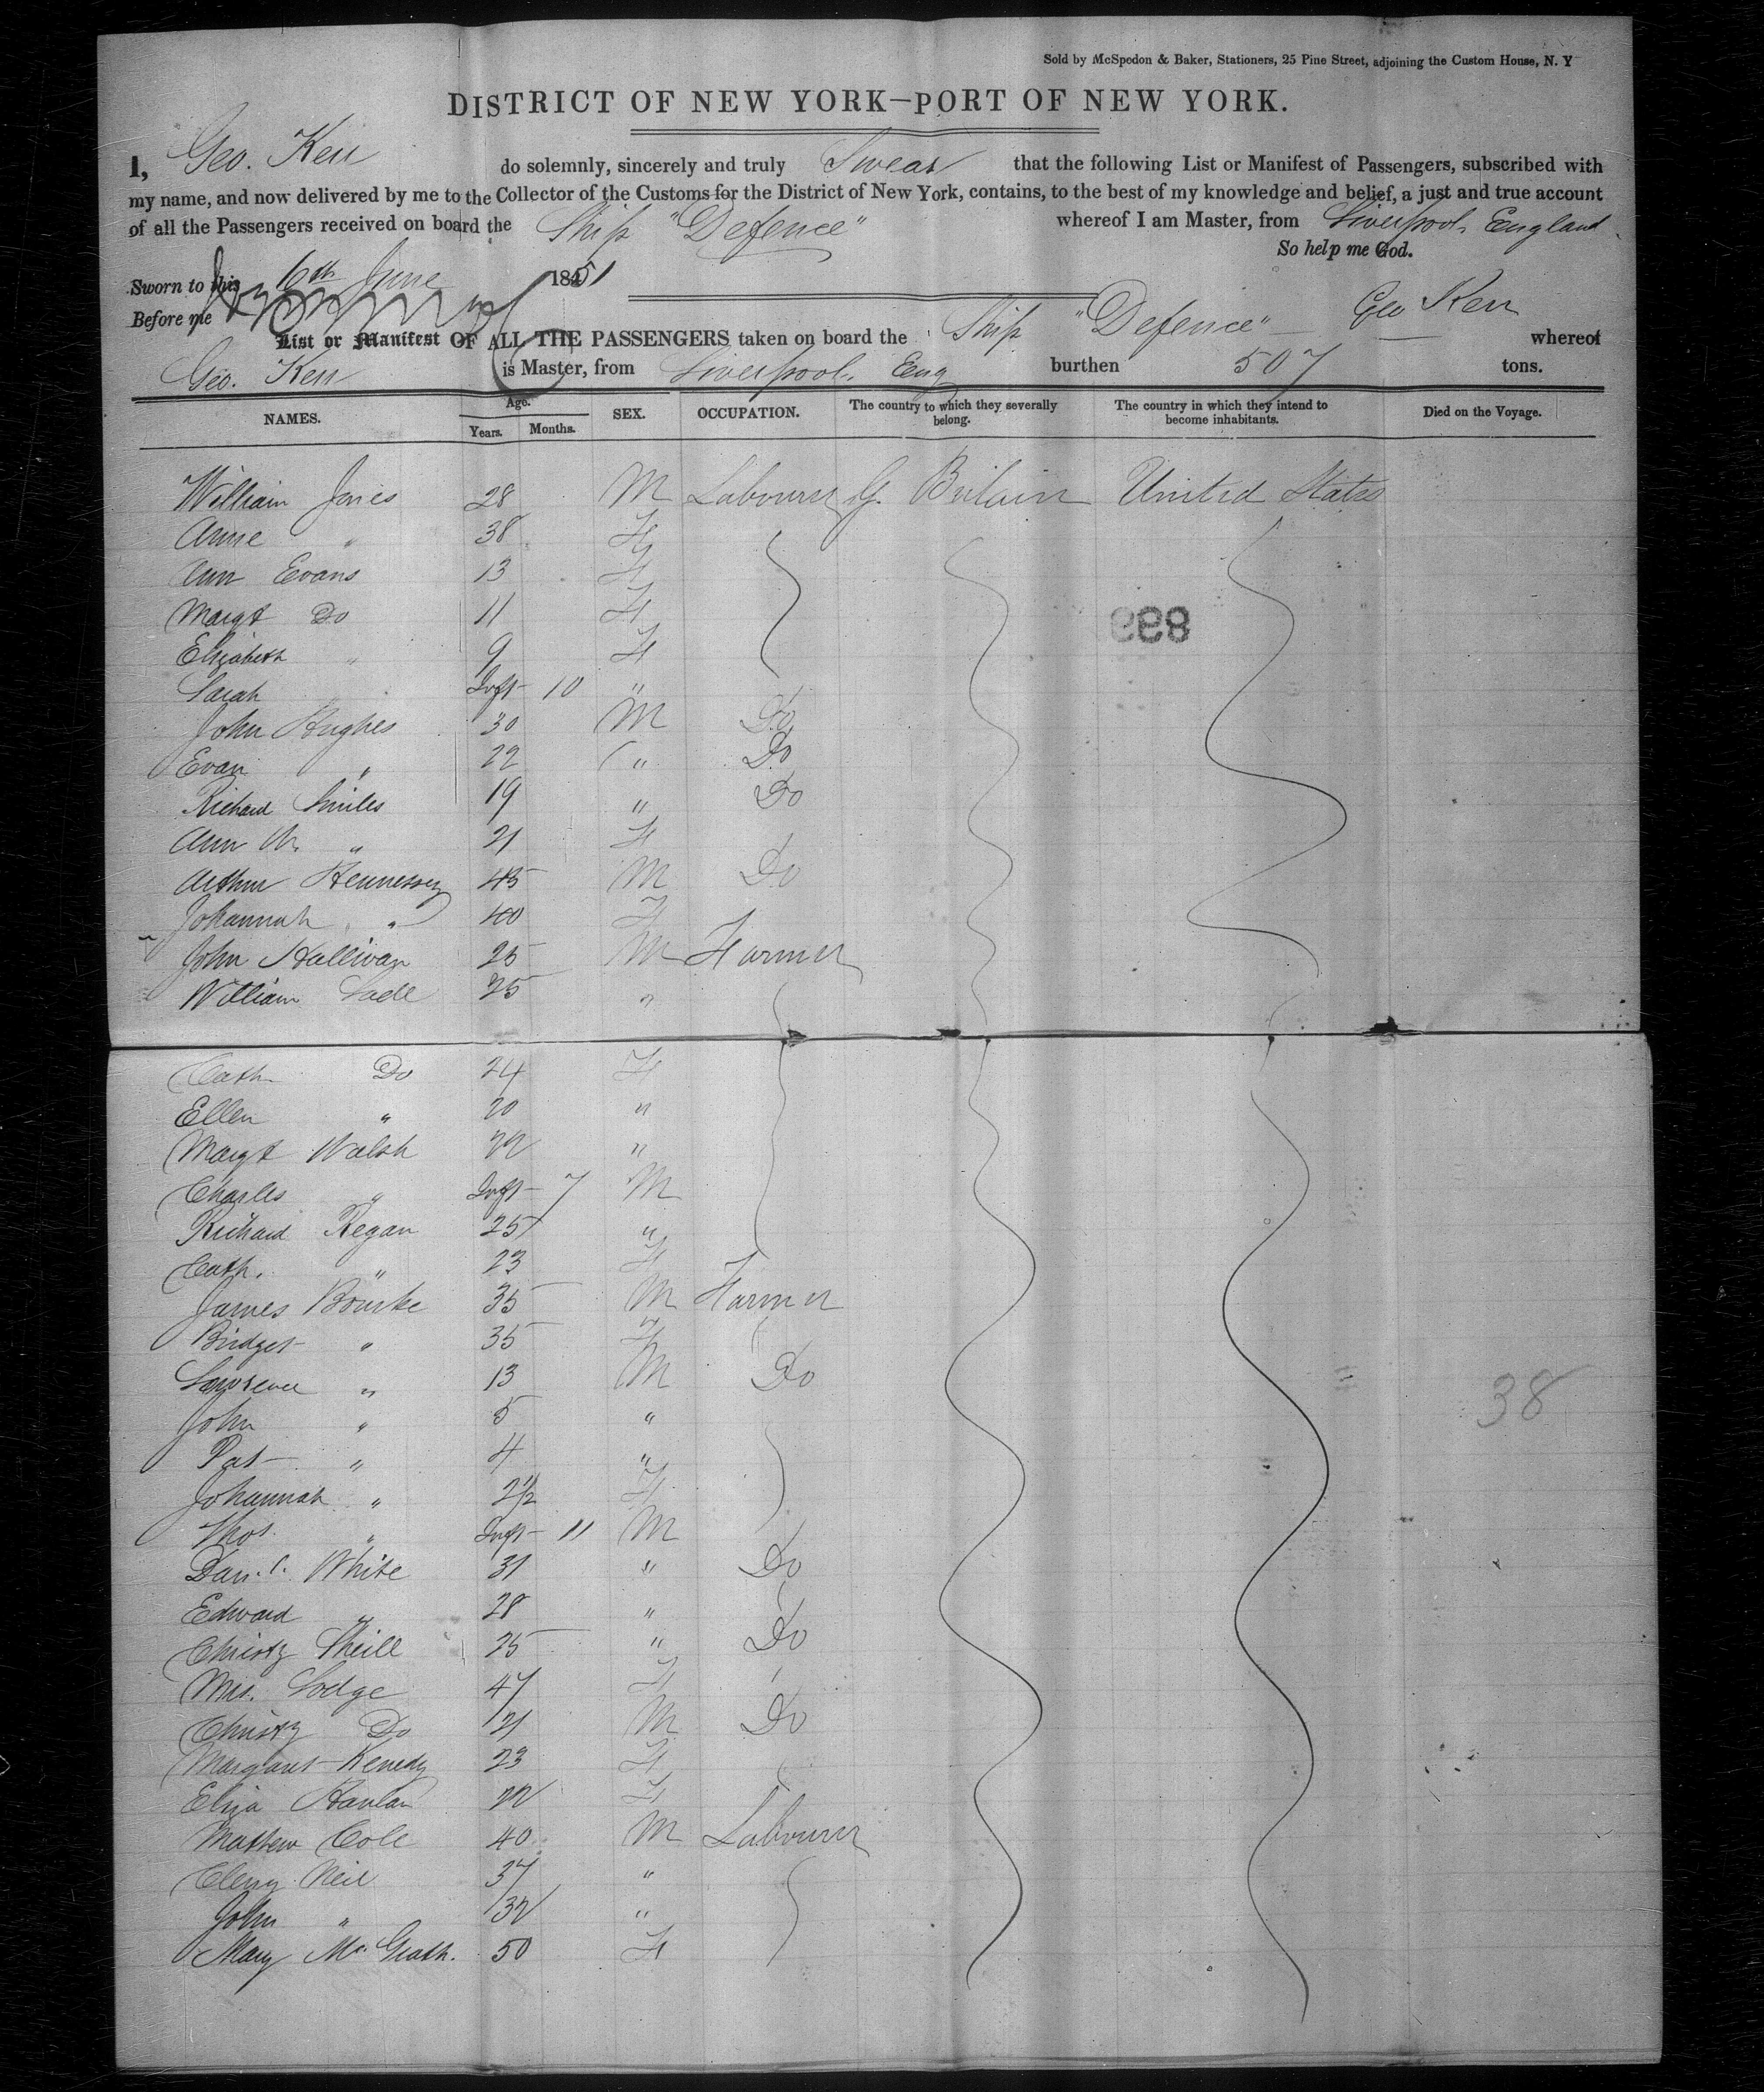 Sold by McSpedon & Baker, Stationers, 25 Pine Street, adjoining the Custom House, N. Y
DISTRICT OF NEW YORK—PORT OF NEW YORK.
I, Geo. Kerr do solemnly, sincerely and truly Swear that the following List or Manifest of Passengers, subscribed with
my name, and now delivered by me to the Collector of the Customs for the District of New York, contains, to the best of my knowledge and belief, a just and true account
of all the Passengers received on board the Ship "Defence" whereof I am Master, from Liverpool, England
So help me God.
Sworn to this 6th June 1851
Before me
Geo Kerr
List or Manifest OF ALL THE PASSENGERS taken on board the Ship "Defence" whereof
Geo. Kerr is Master, from Liverpool. Eng burthen 507 tons.
NAMES. Age. Years. Months. SEX. OCCUPATION. The country to which they severally belong. The country in which they intend to become inhabitants. Died on the Voyage.
William Jones 28 M Labourer G. Britain United States
Anne " 38 F
Ann Evans 13 F
Margt Do 11 F
899
Elizabeth " 9 F
Sarah Inft 10 "
John Hughes 30 M Do
Evan " 22 " Do
Richard Smiles 19 " Do
Ann M. " 21 F
Arthur Hennessey 45 M Do
Johannah " 40 F
John Hallivan 25 M Farmer
William 25 "
Cath. Do 24 F
Ellen " 20 "
Margt Walsh 22 "
Charles " Inft 7 M
Richard Regan 25 "
Cath. " 23 F
James Bourke 35 M Farmer
Bridget " 35 F
Lawrence " 13 M Do
38
John " 5 "
Pat " 4 "
Johannah " 2 1/2 F
Thos " Inft 11 M
Danl. White 31 " Do
Edward " 28 "
Christy Sheill 25 " Do
Mrs. Lodge 47 F
Christy Do 21 M Do
Margaret Kenedy 23 F
Eliza Hanlan 22 F
Mathew Cole 40 M Labourer
Neil 37 "
John " 32 "
Mary McGrath. 50 F